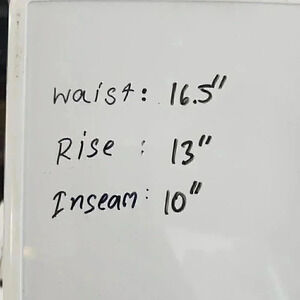 waist: 16.5"
Rise : 13"
Inseam: 10"